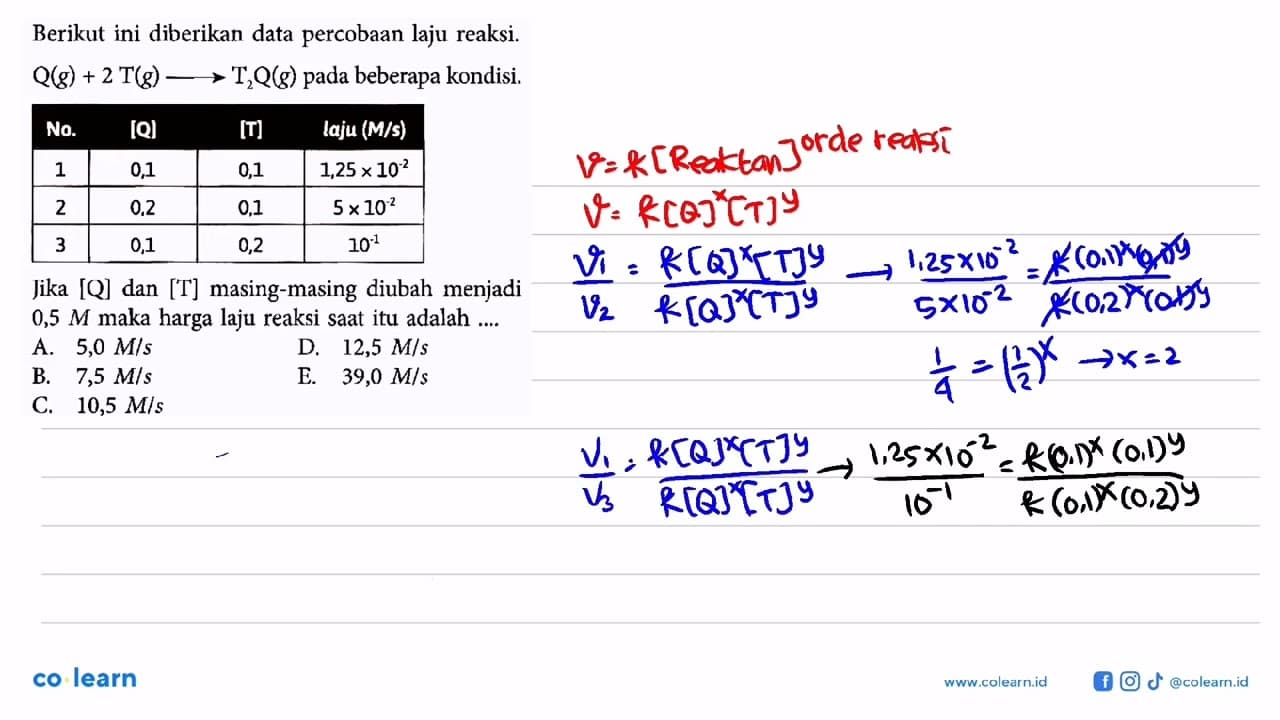 Berikut ini diberikan data percobaan laju reaksi.
Q(g) + 2 T(g) ⟶ T₂Q(g) pada beberapa kondisi.
No. [Q] [T] laju (M/s)
1 0,1 0,1 1,25 × 10⁻²
2 0,2 0,1 5 × 10⁻²
3 0,1 0,2 10⁻¹
Jika [Q] dan [T] masing-masing diubah menjadi
0,5 M maka harga laju reaksi saat itu adalah ....
A. 5,0 M/s D. 12,5 M/s
B. 7,5 M/s E. 39,0 M/s
C. 10,5 M/s
v = k [Reaktan]^orde reaksi
v = k[Q]^x [T]^y
v₁/v₂ = k[Q]^x[T]^y / k[Q]^x[T]^y → 1,25×10⁻² / 5×10⁻² = k(0,1)^x(0,1)^y / k(0,2)^x(0,1)^y
1/4 = (1/2)^x → x = 2
V₁/V₃ = k[Q]^x[T]^y / k[Q]^x[T]^y → 1,25×10⁻² / 10⁻¹ = k(0,1)^x (0,1)^y / k(0,1)^x(0,2)^y
co learn
www.colearn.id
@colearn.id